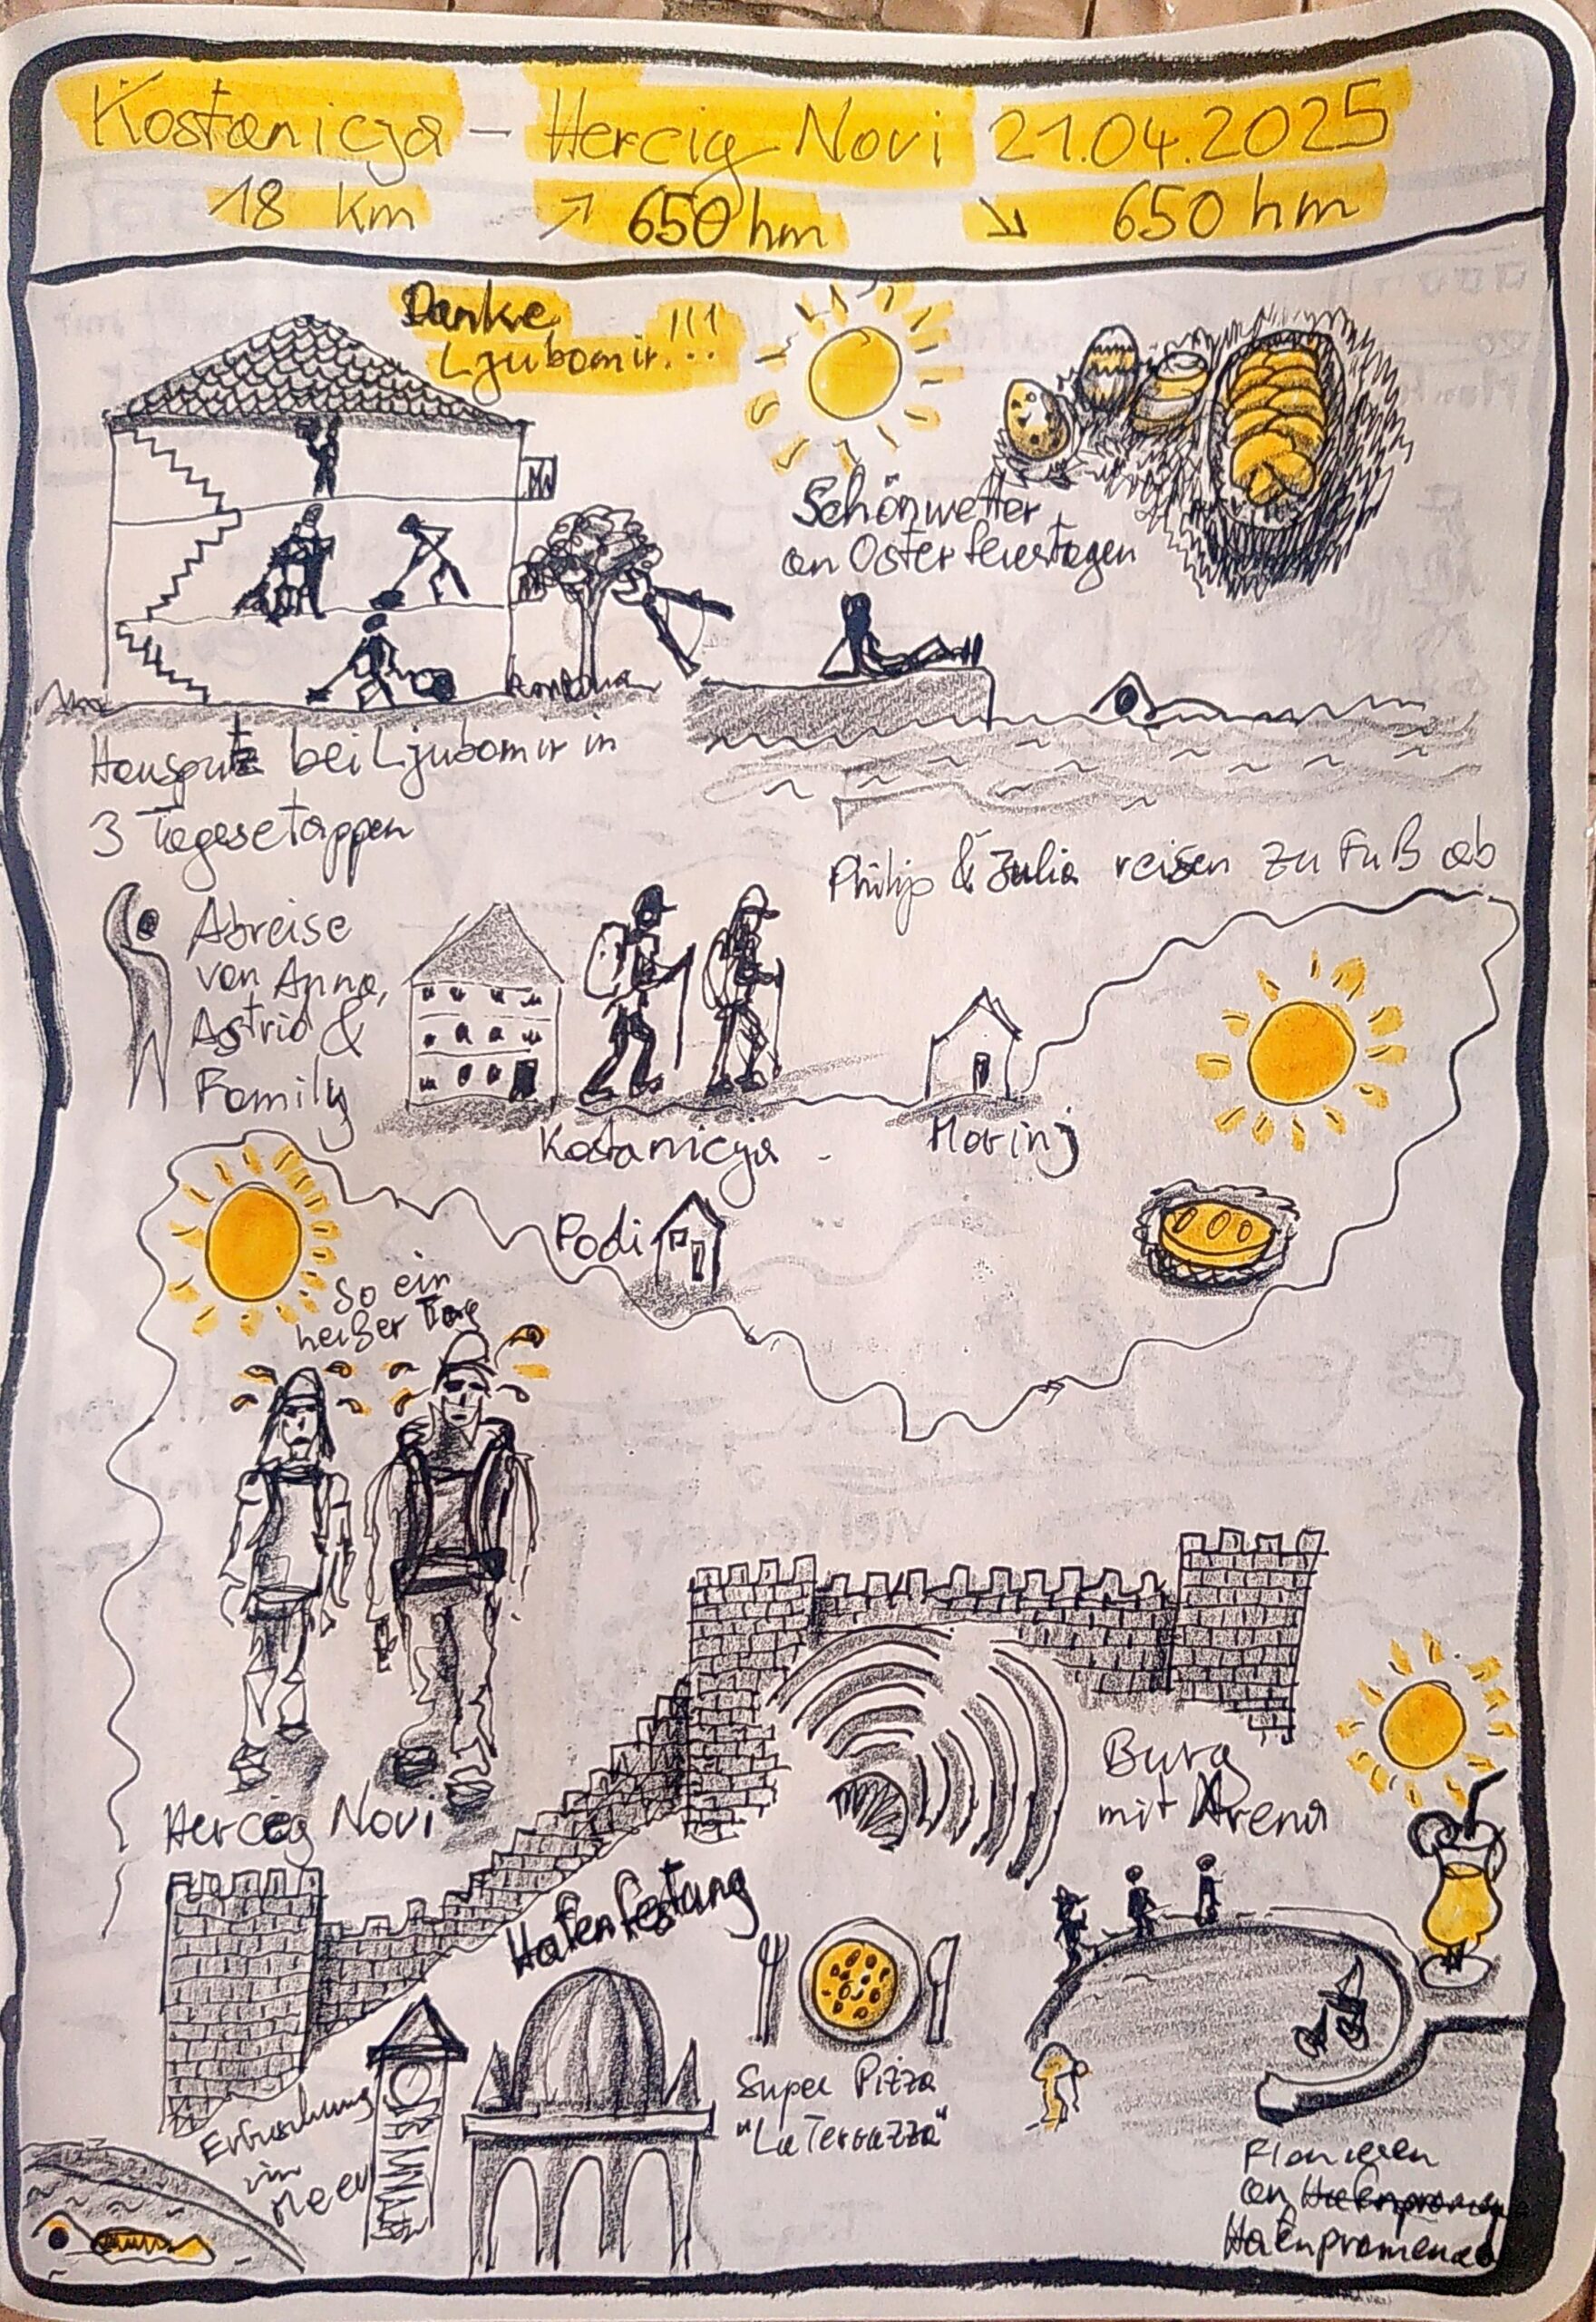 Kostanicja - Hercig Novi 21.04.2025
18 km ↗ 650 hm ↘ 650 hm
Danke
Ljubomir!!!
Schönwetter
an Osterfeiertagen
Hausputz bei Ljubomir in
3 Tagesetappen
Philip & Julia reisen zu Fuß ab
Abreise
von Anna,
Astrid &
Family
Kostanicja
Morinj
Podi
So ein
heißer Tag
Herceg Novi
Burg
mit Arena
Hafenfestung
Super Pizza
"La Terrazza"
Erfrischung
im
Meer
Flanieren
an Hafenpromenade
Hafenpromenade